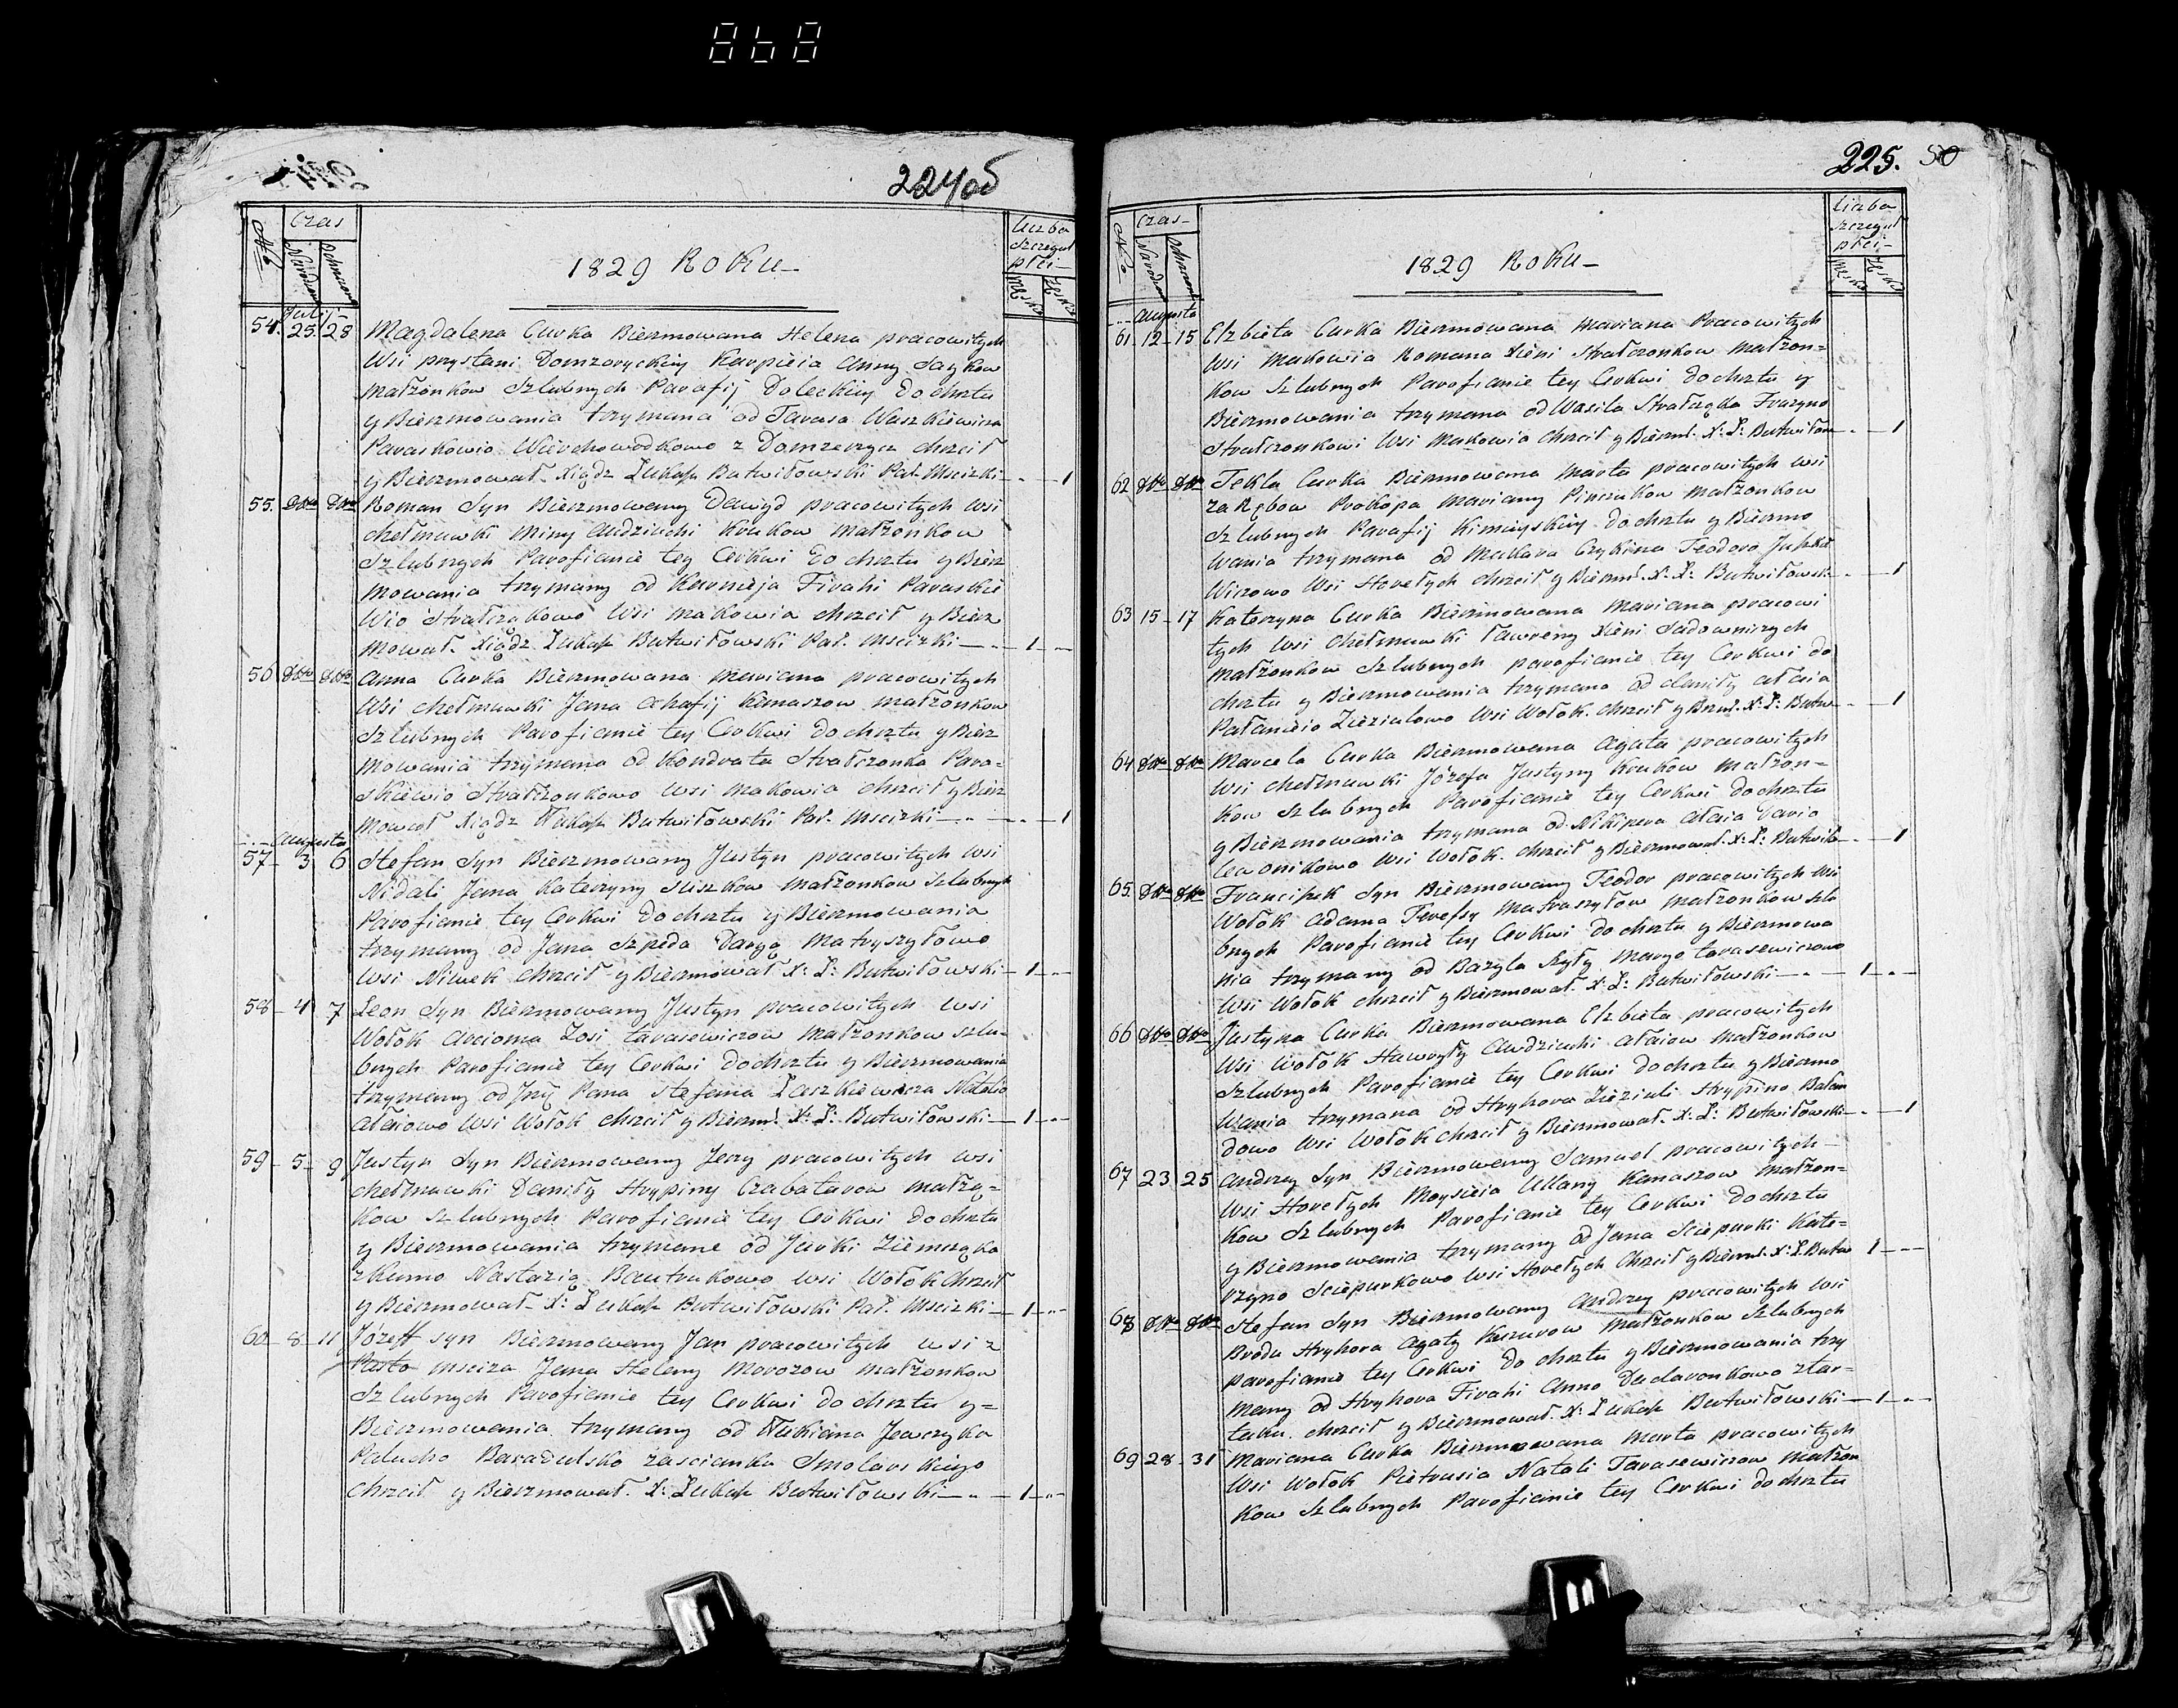 868
224об
No
Czas
Narodzin
Ochrzczon
1829 Roku
Liczba
Szczegul
płci
Męsko
Żeńsko
Julij
54. 25. 28 Magdalena Curka Bierzmowana Helena pracowitych
Wsi przystani Domzeryckiey Karpieia Anny Saykow
Małżonkow Szlubnych Parafij Doleckiey do chrztu
y Bierzmowania trzymana od Tarasa Waszkiewicza
Paraskowio Wierchowodkowo z Domzerycz chrzcił
y Bierzmował Xiądz Łukasz Butwiłowski Pał. Mscizki — 1
55. Dtto Dtto Roman Syn Bierzmowany Dawyd pracowitych wsi
chełmuwki Miny Audziuchi Krukow Małżonkow
Szlubnych Parofianie tey Cerkwi do chrztu y Bierz
mowania trzymany od Karnieja Firahi Paraskie
Wio Strałczukowo Wsi makowia chrzcił y Bierz
mował Xiądz Łukasz Butwiłowski Pał. Mscizki — 1
56 Dtto Dtto Anna Curka Bierzmowana Mariana pracowitych
Wsi chełmuwki Jana Ahafij Kanaszow małżonkow
Szlubnych Parofianie tey Cerkwi do chrztu y Bierz
mowania trzymana od Kondrata Strałczonka Para=
Skiewio Strałczonkowo wsi makowia chrzcił y Bierz
mował Xiądz Łukasz Butwiłowski Pał. Mscizki — 1
Augusta
57 3 6 Stefan Syn Bierzmowany Justyn pracowitych wsi
Nidali Jana Katerzyny Suszkow małżonkow Szlubnych
Parofianie tey Cerkwi do chrztu y Bierzmowania
trzymany od Jana Szpeda Daryo Matryszyłowo
Wsi Niwek chrzcił y Bierzmował X: Ł: Butwiłowski — 1
58 4 7 Leon Syn Bierzmowany Justyn pracowitych wsi
Wołok Arcioma Zosi tarasewiczow małżonkow szlu-
bnych Parofianie tey Cerkwi do chrztu y Bierzmowania
trzymany od Pana Stefana Laszkiewicza Natalio
Ałaiowo wsi Wołok chrzcił y Bierzm. X: Ł: Butwiłowski — 1
59 5 9 Justyn Syn Bierzmowany Jerzy pracowitych wsi
chełmuwki Daniły Hrypiny Czabatarow małżą=
kow szlubnych Parofianie tey Cerkwi do chrztu
y Bierzmowania trzymane od Jurki Ziemczonka
z kumo Nastazio Bautrukowo wsi Wołok chrzcił
y Bierzmował X: Łukasz Butwiłowski Pał. Mscizki — 1
60 8 11 Józeff syn Bierzmowany Jan pracowitych wsi z
Msciza Jana Heleny Morozow małżonkow
Szlubnych Parofianie tey Cerkwi do chrztu y=
Bierzmowania trzymany od Łukiana Jawczyka
Palucho Baradulsko zascianka Smolarskiego
chrzcił y Bierzmował X: Łukasz Butwiłowski — 1
225. 50
No
Czas
Narodzin
Ochrzczon
1829 Roku
Liczba
Szczegul
płci
Męsko
Żeńsko
Augusta
61 12 15 Elzbieta Curka Bierzmowana Mariana Pracowitych
Wsi makowia Romana Xieni Strałczonkow małżon=
kow Szlubnych Parofianie tey Cerkwi do chrztu y
Bierzmowania trzymana od Wasila Strałczonka Fruzyno
Strałczonkowi Wsi Makowia chrzcił y Bierzm. X: Ł: Butwiłow — 1
62 Dtto Dtto Tekla Curka Bierzmowana Marta pracowitych wsi
za Rębow Prokopa Mariany Pinczukow małżonkow
Szlubnych Parafij Kimieyskiey do chrztu y Bierzmo
wania trzymana od Makara Czykina Teodoro Juszkie
Wiczowo Wsi Horełych chrzcił y Bierzm. X. Ł: Butwiłowski — 1
63 15 17 Katerzyna Curka Bierzmowana Mariana pracowi
tych wsi Chełmuwki Ławreny Xieni Sadowniczych
małżonkow Szlubnych parofianie tey Cerkwi do
chrztu y Bierzmowania trzymana od daniły ałaia
Pałanieio Ziezialowo Wsi Wołok. chrzcił y Bzm. X: Ł: Butw — 1
64 Dtto Dtto Marcela Curka Bierzmowana Agata pracowitych
wsi chełmuwki Józefa Justyny Krukow małżon-
kow Szlubnych Parofianie tey Cerkwi do chrztu
y Bierzmowania trzymana od Nikipera ałaia Dario
Lewonikowo wsi wołok. chrzcił y Bierzmował X: Ł: Butwiło — 1
65. Dtto Dtto Franciszek Syn Bierzmowany Teodor pracowitych wsi
Wołok Adama Teressy Matraszyłow małżonkow szlu
bnych Parofianie tey Cerkwi do chrztu y Bierzmowa
nia trzymany od Bazyla Szyły Maryo tarasewiczowo
Wsi Wołok chrzcił y Bierzmował X: Ł: Butwiłowski — 1
66 Dtto Dtto Justyna Curka Bierzmowana Elzbieta pracowitych
Wsi Wołok Hawryły Audziuchi ałaiow Małżonkow
Szlubnych Parofianie tey Cerkwi do chrztu y Bierzmo
Wania trzymana od Hryhora Ziezuli Hrypino Balan
dowo Wsi Wołok chrzcił y Bierzmował. X: Ł: Butwiłowski — 1
67 23 25 Andrzey Syn Bierzmowany Samuel pracowitych
wsi Horełych Moysieia Ullany Kanaszow małżon=
kow Szlubnych Parofianie tey Cerkwi do chrztu
y Bierzmowania trzymany od Jana Sciepurki Kate=
rzyno Sciepurkowo wsi Horełych chrzcił y Bierzm. X: Ł. Butw 1
68 Dtto Dtto Stefan Syn Bierzmowany Andrzey pracowitych wsi
Brodu Hryhora Agaty Kazurow małżonkow Szlubnych
parofianie tey Cerkwi do chrztu y Bierzmowania trzy
many od Hryhora Firahi Anno Dudaronkowo z tar=
taku. chrzcił y Bierzmował. X: Łukasz Butwiłowski — 1
69 28 31 Mariana Curka Bierzmowana Marta pracowitych
Wsi Wołok Pietrusia Natali Tarasewiczow małżon
kow Szlubnych Parofianie tey Cerkwi do chrztu